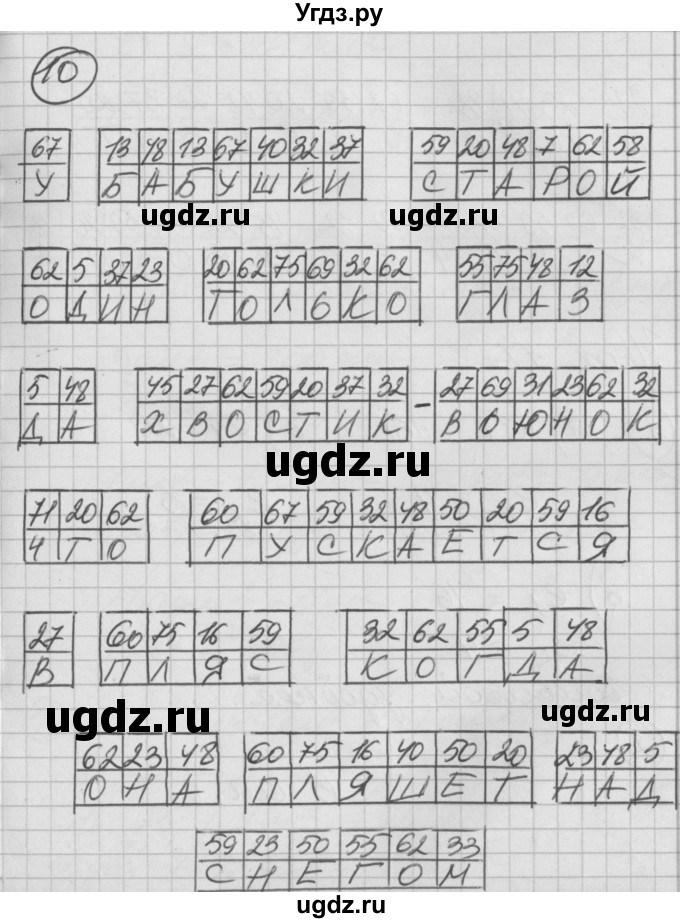 Угдз.ру
10
67 13 48 13 67 40 32 37 59 20 48 7 62 58
У БАБУШКИ СТАРОЙ
ugdz.ru ugdz.ru
62 5 37 23 20 62 75 69 32 62 55 75 48 12
ОДИН ТОЛЬКО ГЛАЗ
5 48 45 27 62 59 20 37 32 - 27 69 31 23 62 32
ДА ХВОСТИК - ВЬЮНОК
ugdz.ru
71 20 62 60 67 59 32 48 50 20 59 16
ЧТО ПУСКАЕТСЯ
27 60 75 16 59 32 62 55 5 48
В ПЛЯС КОГДА
ugdz.ru ugdz.ru
62 23 48 60 75 16 40 50 20 23 48 5
ОНА ПЛЯШЕТ НАД
59 23 50 55 62 33
СНЕГОМ
ugdz.ru